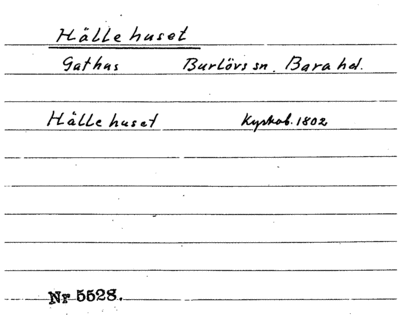 Hällehuset
Gathus Burlövs sn. Bara hd.
Hällehuset Kyrkob. 1802
Nr 5528.